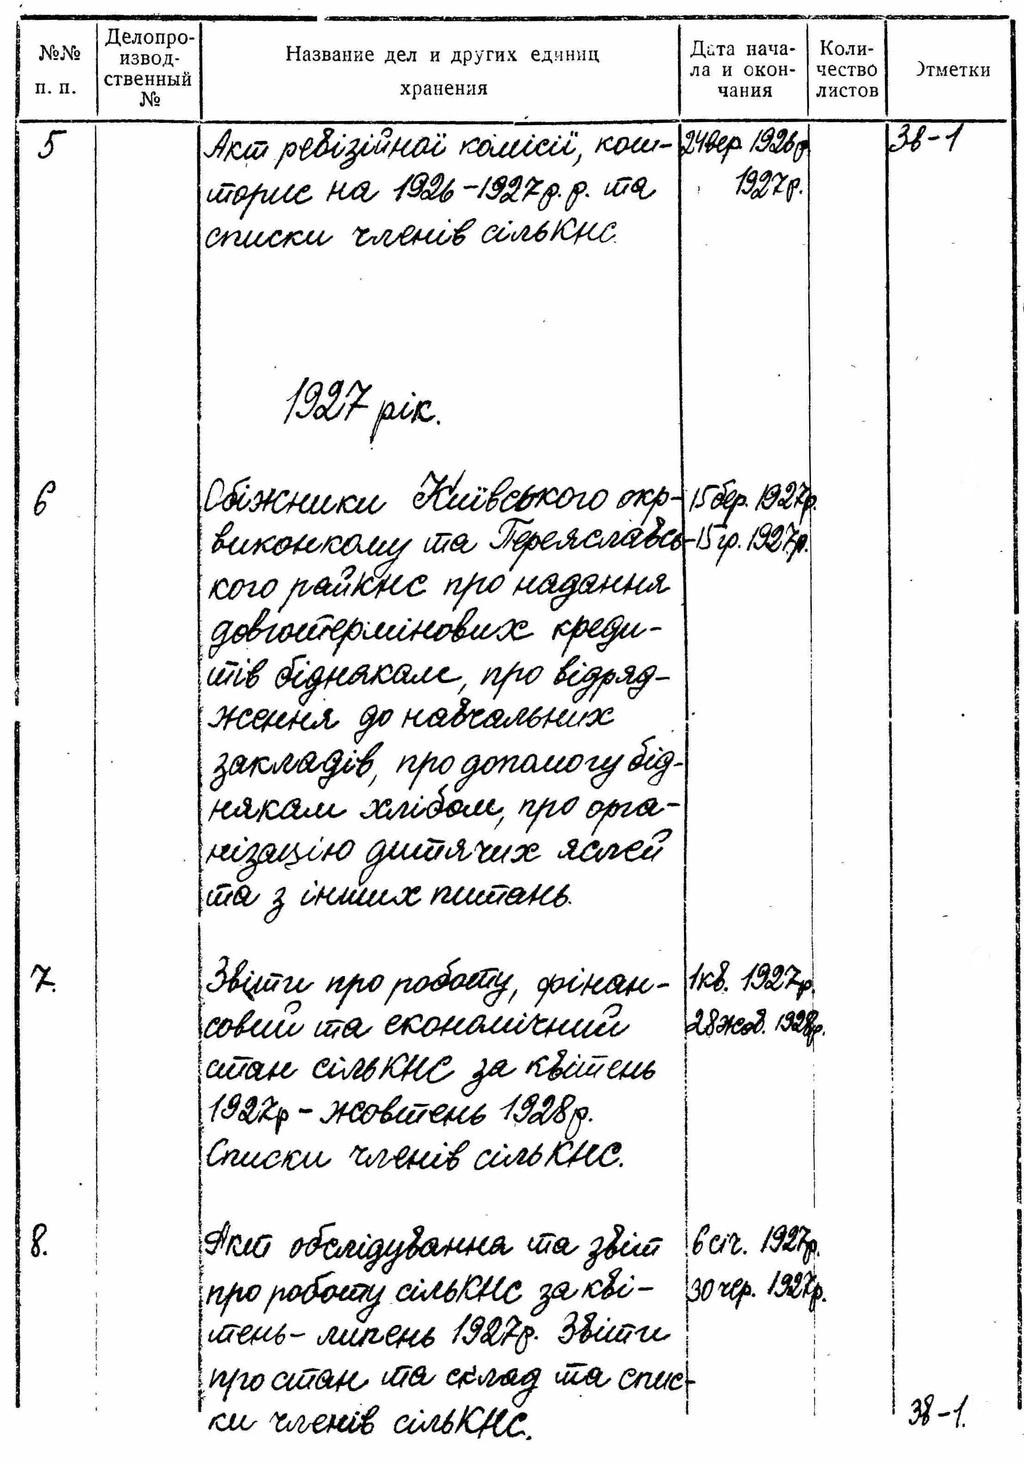 №№ п. п.
Делопро-
извод-
ственный
№
Название дел и других единиц
хранения
Дата нача-
ла и окон-
чания
Коли-
чество
листов
Отметки
5
Акт ревізійної комісії, кош-
торис на 1926-1927 р.р. та
списки членів сільКНС.
24 вер. 1926 р.
1927 р.
Зв-1
1927 рік.
6
Обіжники Київського окр-
виконкому та Переяславсь-
кого райКНС про надання
довгострмінових креди-
тів біднякам, про відряд-
ження до навчальних
закладів, про допомогу бід-
някам хлібом, про орга-
нізацію дитячих яслей
та з інших питань.
15 бер. 1927 р.
-15 гр. 1927 р.
7.
Звіти про роботу, фінан-
совий та економічний
стан сільКНС за квітень
1927 р - жовтень 1928 р.
Списки членів сільКНС.
1 кв. 1927 р.
28 жов. 1928 р.
8.
Акт обслідування та звіт
про роботу сільКНС за кві-
тень - липень 1927 р. Звіти
про стан та склад та спис-
ки членів сільКНС.
6 січ. 1927 р.
30 чер. 1927 р.
Зв-1.